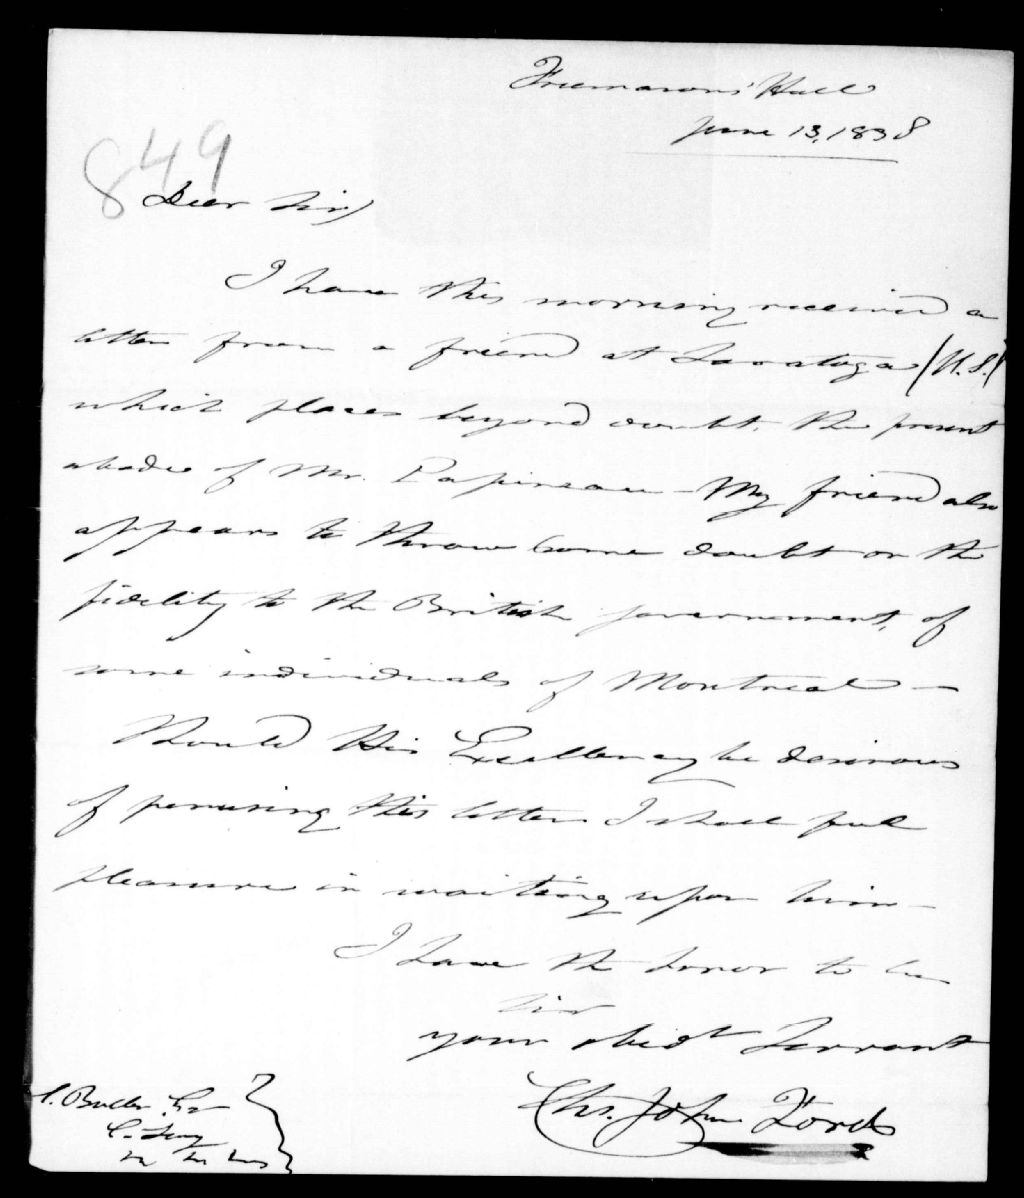 Freemasons' Hall
June 13, 1838
849
Dear Sir,
I have this morning received a
letter from a friend at Saratoga (U.S.)
which places beyond doubt, the present
abode of Mr. Papineau - My friend also
appears to throw some doubt on the
fidelity to the British government, of
some individuals of Montreal -
Should His Excellency be desirous
of perusing this letter I shall feel
pleasure in waiting upon him -
I have the honor to be
Sir
your obedt Servant
Chs. John Fords
C. Buller Esq